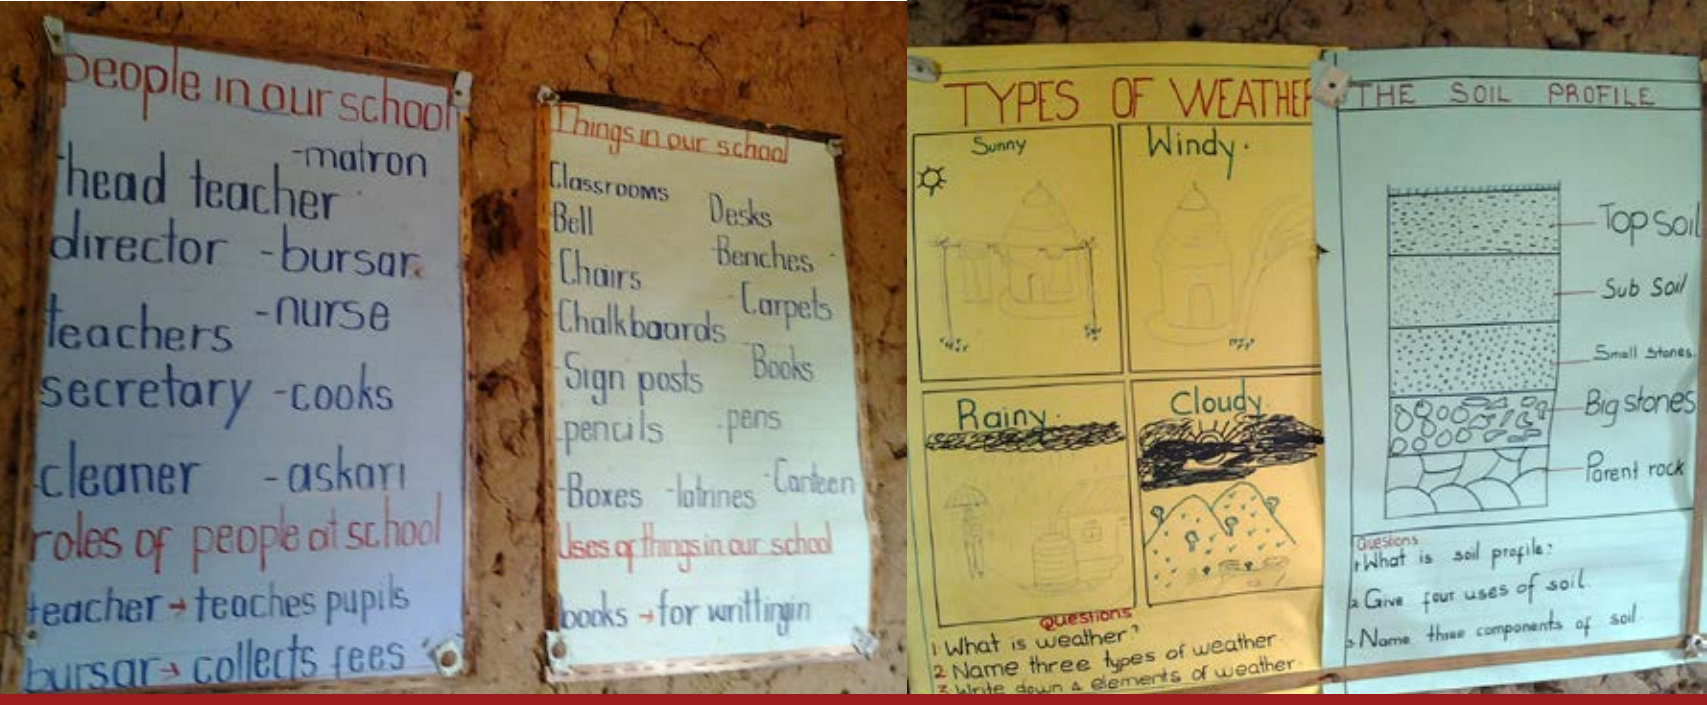 people in our school
-matron
head teacher
director -bursar
teachers -nurse
secretary -cooks
cleaner -askari
roles of people at school
teacher → teaches pupils
bursar → collects fees
Things in our school
Classrooms Desks
Bell Benches
Chairs -Carpets
Chalkboards Books
-Sign posts
-pencils -pens
-Boxes -latrines -Canteen
Uses of things in our school
books → for writtingin
TYPES OF WEATHER
Sunny Windy.
Rainy. Cloudy.
Questions
1 What is weather?
2 Name three types of weather
3 Write down 4 elements of weather.
THE SOIL PROFILE
Top soil
Sub Soil
Small stones
Big stones
Parent rock
Questions
1 What is soil profile?
2 Give four uses of soil.
3 Name three components of soil.